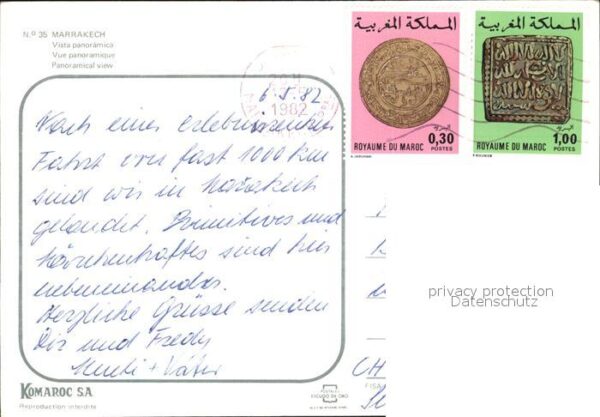 N.º 35 MARRAKECH
Vista panorámica
Vue panoramique
Panoramical view
المملكة المغربية
0,30
POSTES
ROYAUME DU MAROC
المملكة المغربية
1,00
POSTES
ROYAUME DU MAROC
1982
6.5.82
Nach einer erlebnisreichen
Fahrt von fast 1000 km
sind wir in Marakech
gelandet. Primitives und
Märchenhaftes sind hier
nebeneinander.
Herzliche Grüsse senden
Dir und Fredy
+ Vater
privacy protection
Datenschutz
CH
KOMAROC S.A.
Reproduction interdite
ESCUDO DE ORO